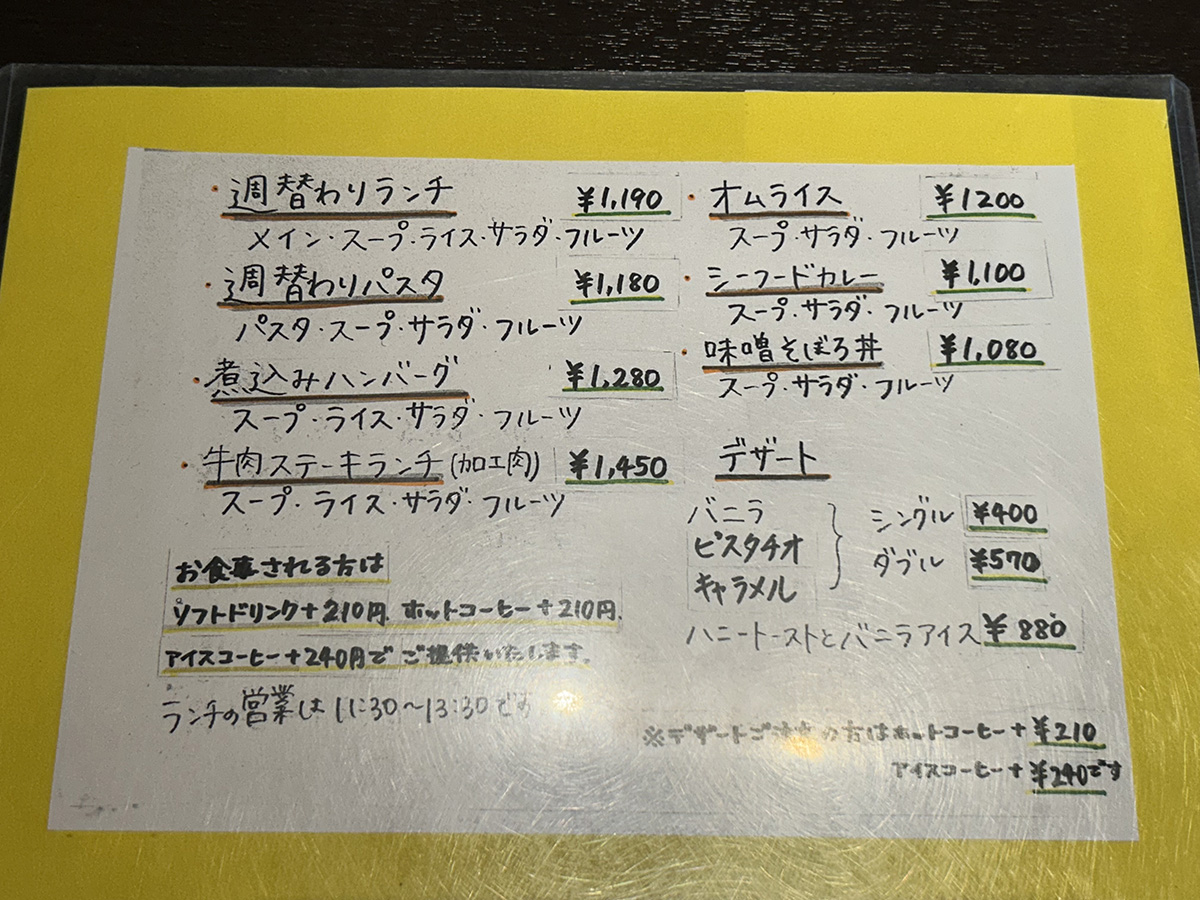 ・週替わりランチ ¥1,190
メイン・スープ・ライス・サラダ・フルーツ
・週替わりパスタ ¥1,180
パスタ・スープ・サラダ・フルーツ
・煮込みハンバーグ ¥1,280
スープ・ライス・サラダ・フルーツ
・牛肉ステーキランチ(加工肉) ¥1,450
スープ・ライス・サラダ・フルーツ
お食事される方は
ソフトドリンク+210円.ホットコーヒー+210円.
アイスコーヒー+240円でご提供いたします.
ランチの営業は11:30〜13:30です
・オムライス ¥1200
スープ・サラダ・フルーツ
・シーフードカレー ¥1,100
スープ・サラダ・フルーツ
・味噌そぼろ丼 ¥1,080
スープ・サラダ・フルーツ
デザート
バニラ シングル ¥400
ピスタチオ
ダブル ¥570
キャラメル
ハニートーストとバニラアイス ¥880
※デザートご の方はホットコーヒー+¥210
アイスコーヒー+¥240です